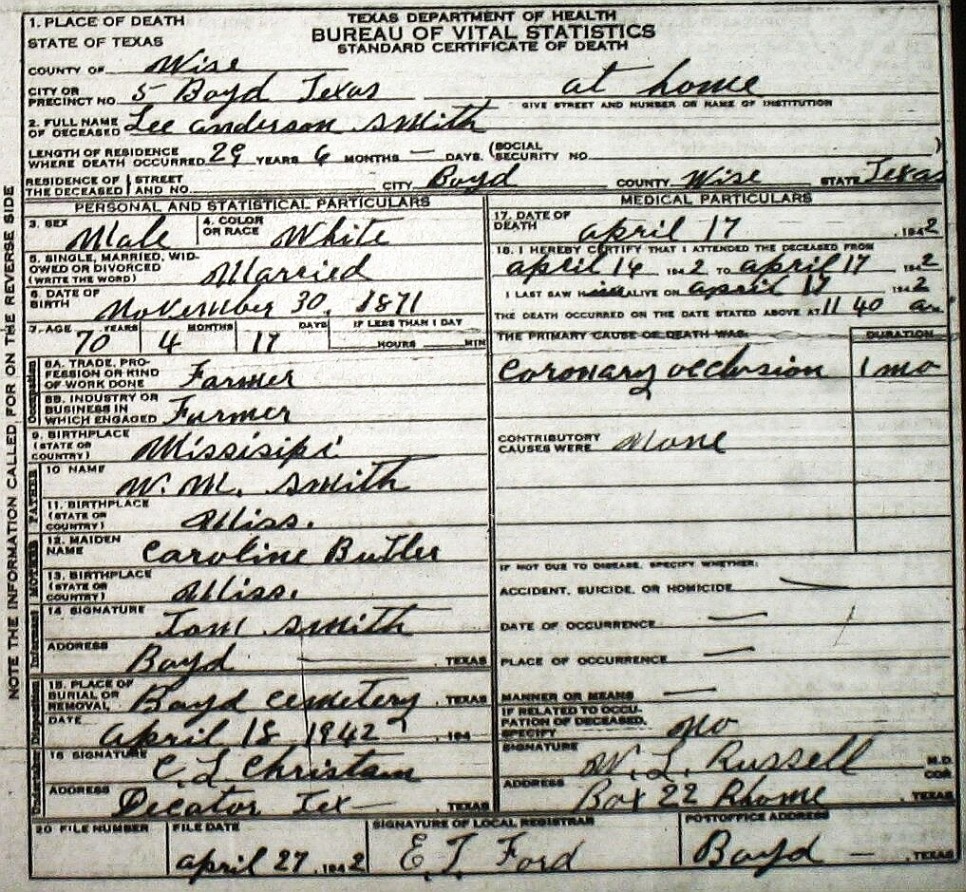 TEXAS DEPARTMENT OF HEALTH
BUREAU OF VITAL STATISTICS
STANDARD CERTIFICATE OF DEATH
NOTE THE INFORMATION CALLED FOR ON THE REVERSE SIDE
1. PLACE OF DEATH
STATE OF TEXAS
COUNTY OF Wise
CITY OR PRECINCT NO. 5 Boyd Texas at home
GIVE STREET AND NUMBER OR NAME OF INSTITUTION
2. FULL NAME OF DECEASED Lee anderson smith
LENGTH OF RESIDENCE WHERE DEATH OCCURRED 29 YEARS 6 MONTHS — DAYS. (SOCIAL SECURITY NO. )
RESIDENCE OF THE DECEASED STREET AND NO. CITY Boyd COUNTY Wise STATE Texas
PERSONAL AND STATISTICAL PARTICULARS
3. SEX Male 4. COLOR OR RACE White
5. SINGLE, MARRIED, WIDOWED OR DIVORCED (WRITE THE WORD) Married
6. DATE OF BIRTH November 30, 1871
7. AGE YEARS MONTHS DAYS IF LESS THAN 1 DAY
70 4 17 HOURS MIN
Occupation
8A. TRADE, PROFESSION OR KIND OF WORK DONE Farmer
8B. INDUSTRY OR BUSINESS IN WHICH ENGAGED Farmer
9. BIRTHPLACE (STATE OR COUNTRY) Missisipi
FATHER
10 NAME W. M. smith
11. BIRTHPLACE (STATE OR COUNTRY) Miss.
MOTHER
12. MAIDEN NAME Caroline Butler
13. BIRTHPLACE (STATE OR COUNTRY) Miss.
Informant
14 SIGNATURE Tom smith
ADDRESS Boyd — , TEXAS
Disposition
15. PLACE OF BURIAL OR REMOVAL Boyd cemetery , TEXAS
DATE april 18 1942 , 194
Undertaker
16 SIGNATURE C. L. Christian
ADDRESS Decator Tex — , TEXAS
MEDICAL PARTICULARS
17. DATE OF DEATH april 17 , 1942
18. I HEREBY CERTIFY THAT I ATTENDED THE DECEASED FROM
april 14 1942 TO april 17 1942
I LAST SAW H im ALIVE ON april 17 1942
THE DEATH OCCURRED ON THE DATE STATED ABOVE AT 11 40 a M.
THE PRIMARY CAUSE OF DEATH WAS: DURATION
Coronary occlusion 1 mo
CONTRIBUTORY CAUSES WERE None
IF NOT DUE TO DISEASE, SPECIFY WHETHER:
ACCIDENT, SUICIDE, OR HOMICIDE —
DATE OF OCCURRENCE —
PLACE OF OCCURRENCE —
MANNER OR MEANS —
IF RELATED TO OCCUPATION OF DECEASED, SPECIFY no
SIGNATURE W. L. Russell M.D. COR.
ADDRESS Box 22 Rhome , TEXAS
20 FILE NUMBER FILE DATE SIGNATURE OF LOCAL REGISTRAR POSTOFFICE ADDRESS
april 27, 1942 E. T. Ford Boyd — , TEXAS